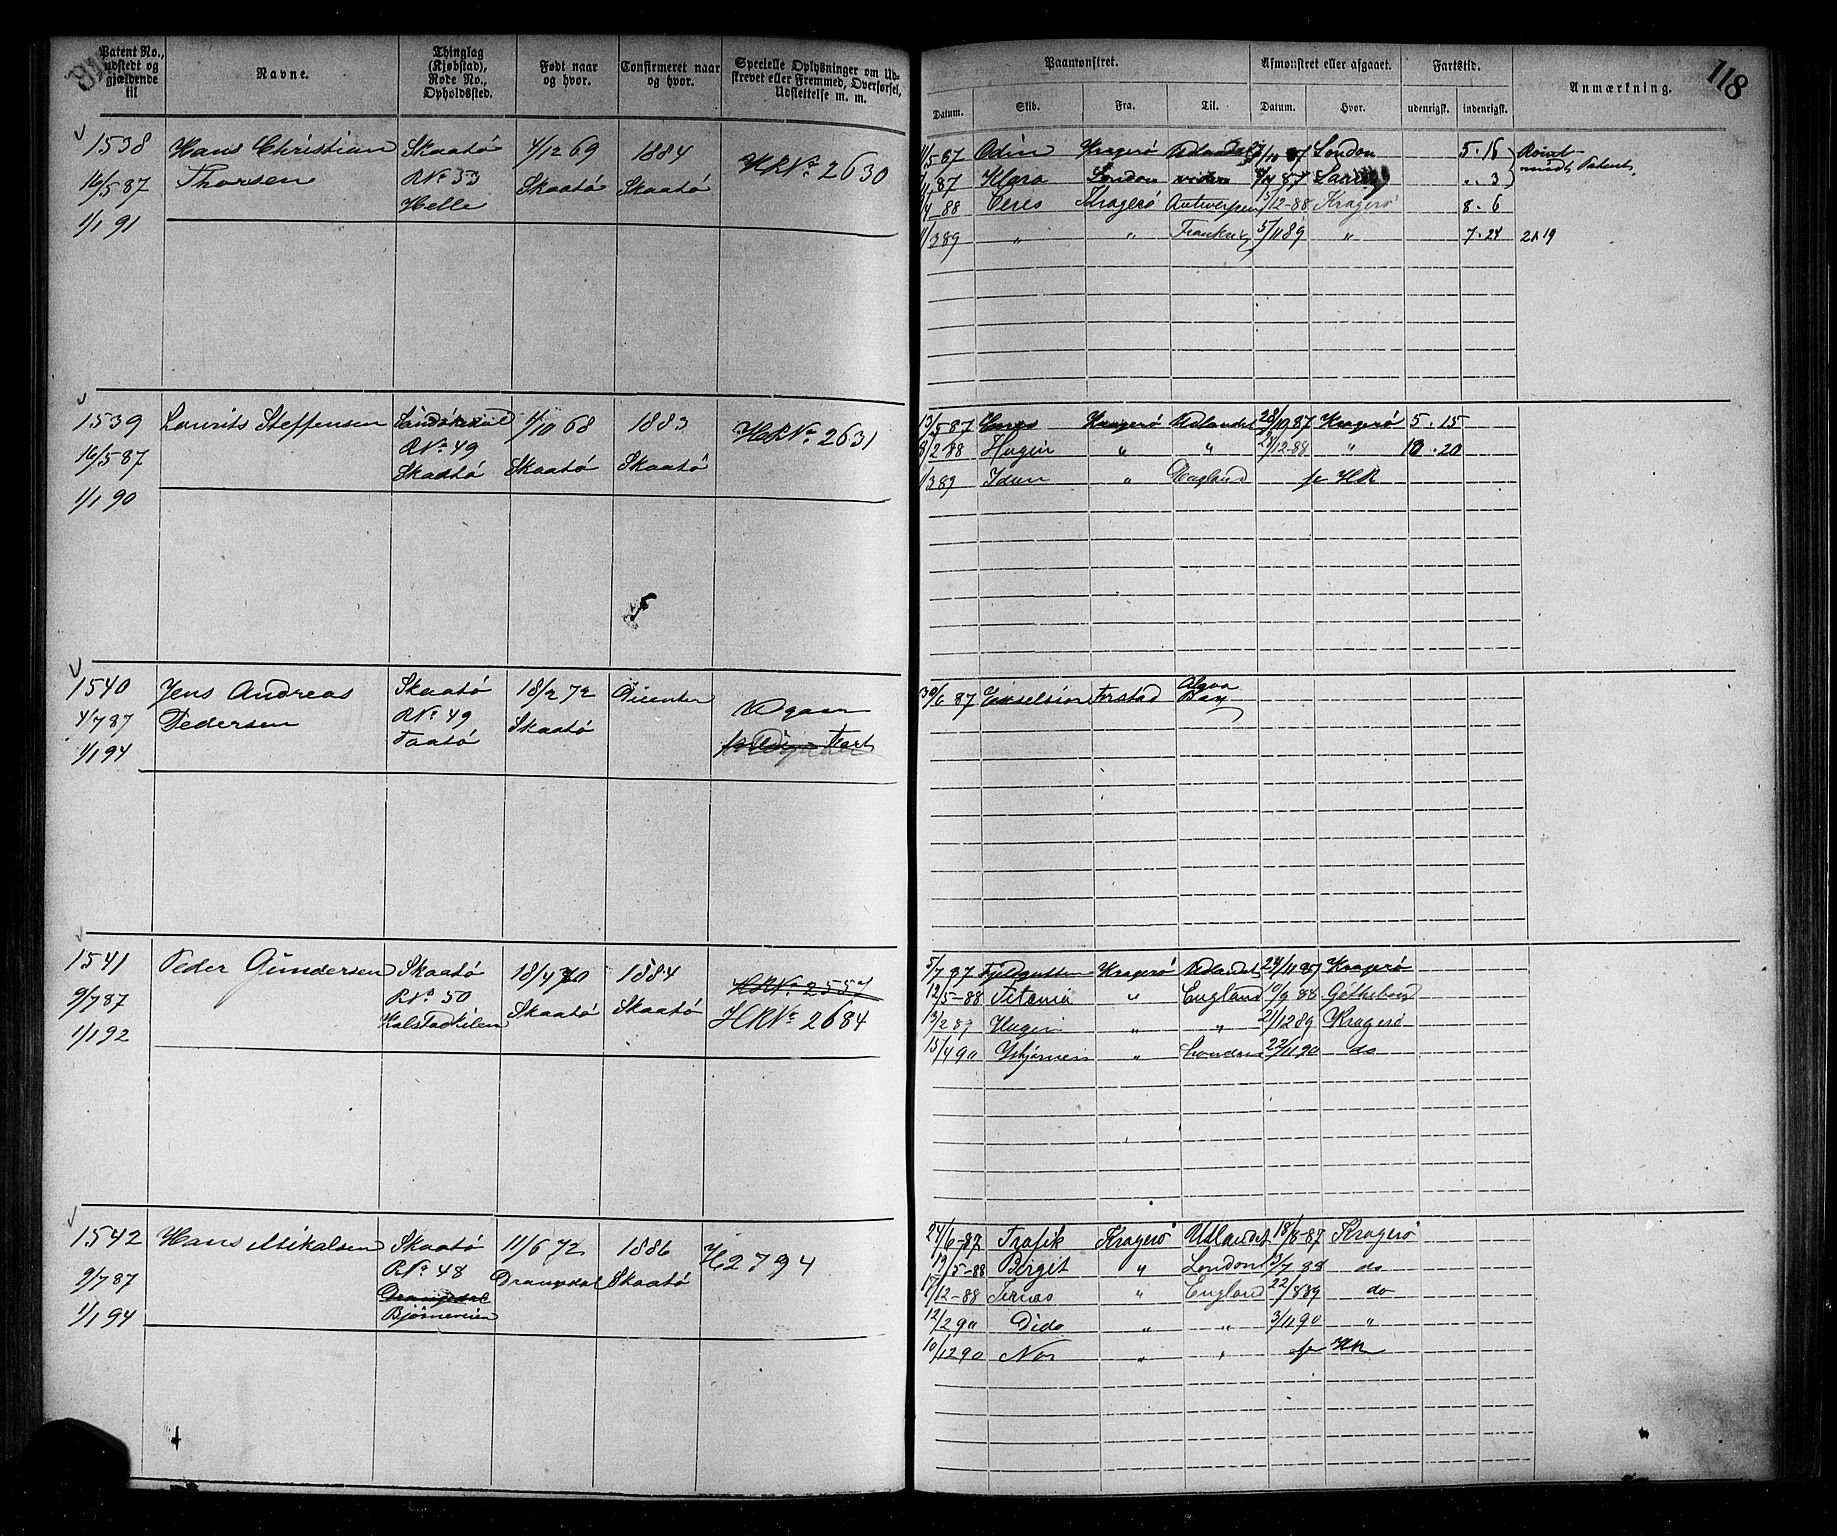 118
Patent No., udstedt og gjældende til
Navne.
Thinglag (Kjøbstad), Rode No., Opholdssted.
Født naar og hvor.
Confirmeret naar og hvor.
Specielle Oplysninger om Udskrevet eller Fremmed, Overførsel, Udslettelse m. m.
Paamønstret.
Afmønstret eller afgaaet.
Fartstid.
Anmærkning.
Datum. Skib. Fra. Til. Datum. Hvor. udenrigsk. indenrigsk.
1538 Hans Christian Skaatø 4/12 69 1884 HRNo 2630
16/5 87 Thorsen RNo 53 Skaatø Skaatø
1/1 91 Helle
11/5 87 Odin Kragerø London 5.16
87 Klara London 3
88 Ceres Kragerø Antwerpen /12-88 Kragerø 8.6
11/3 89 " " 5/11 89 " 7.24 19
1539 Laurits Steffensen 4/10 68 1883 HRNo 2631
16/5 87 RNo 49 Skaatø Skaatø
1/1 90 Skaatø
13/5 87 Kragerø Udlandet 28/10 87 Kragerø 5.15
8/2 88 Hugin " " /12-88 " 10.20
1/3 89 Idun " England HR
1540 Jens Andreas Skaatø 18/2 72
4/7 87 Pedersen RNo 49 Skaatø
1/1 94 Taatø
30/6 87 Exselsior Algoa Bay
1541 Peder Gundersen Skaatø 18/4 70 1884 HRNo 2554
9/7 87 RNo 50 Skaatø Skaatø HRNo 2684
1/1 92 Kalstadkilen
5/7 87 Kragerø Udlandet 24/11 87 Kragerø
12/5-88 Titania " England 10/9 88 Gøtheborg
13/2 89 Hugin " " 21/12 89 Kragerø
15/4 90 " London 22/11 90 do
1542 Hans Mikalsen Skaatø 11/6 72 1886 H2794
9/7 87 RNo 48 Drangedal Skaatø
1/1 94 Drangedal
24/6-87 Trafik Kragerø Utlandet 18/8-87 Kragerø
19/5-88 Bergit " London 13/7 88 do
17/12-88 " England 22/8 89 do
12/2 90 Dido " " 3/11 90 "
10/12 90 Nor " " HR